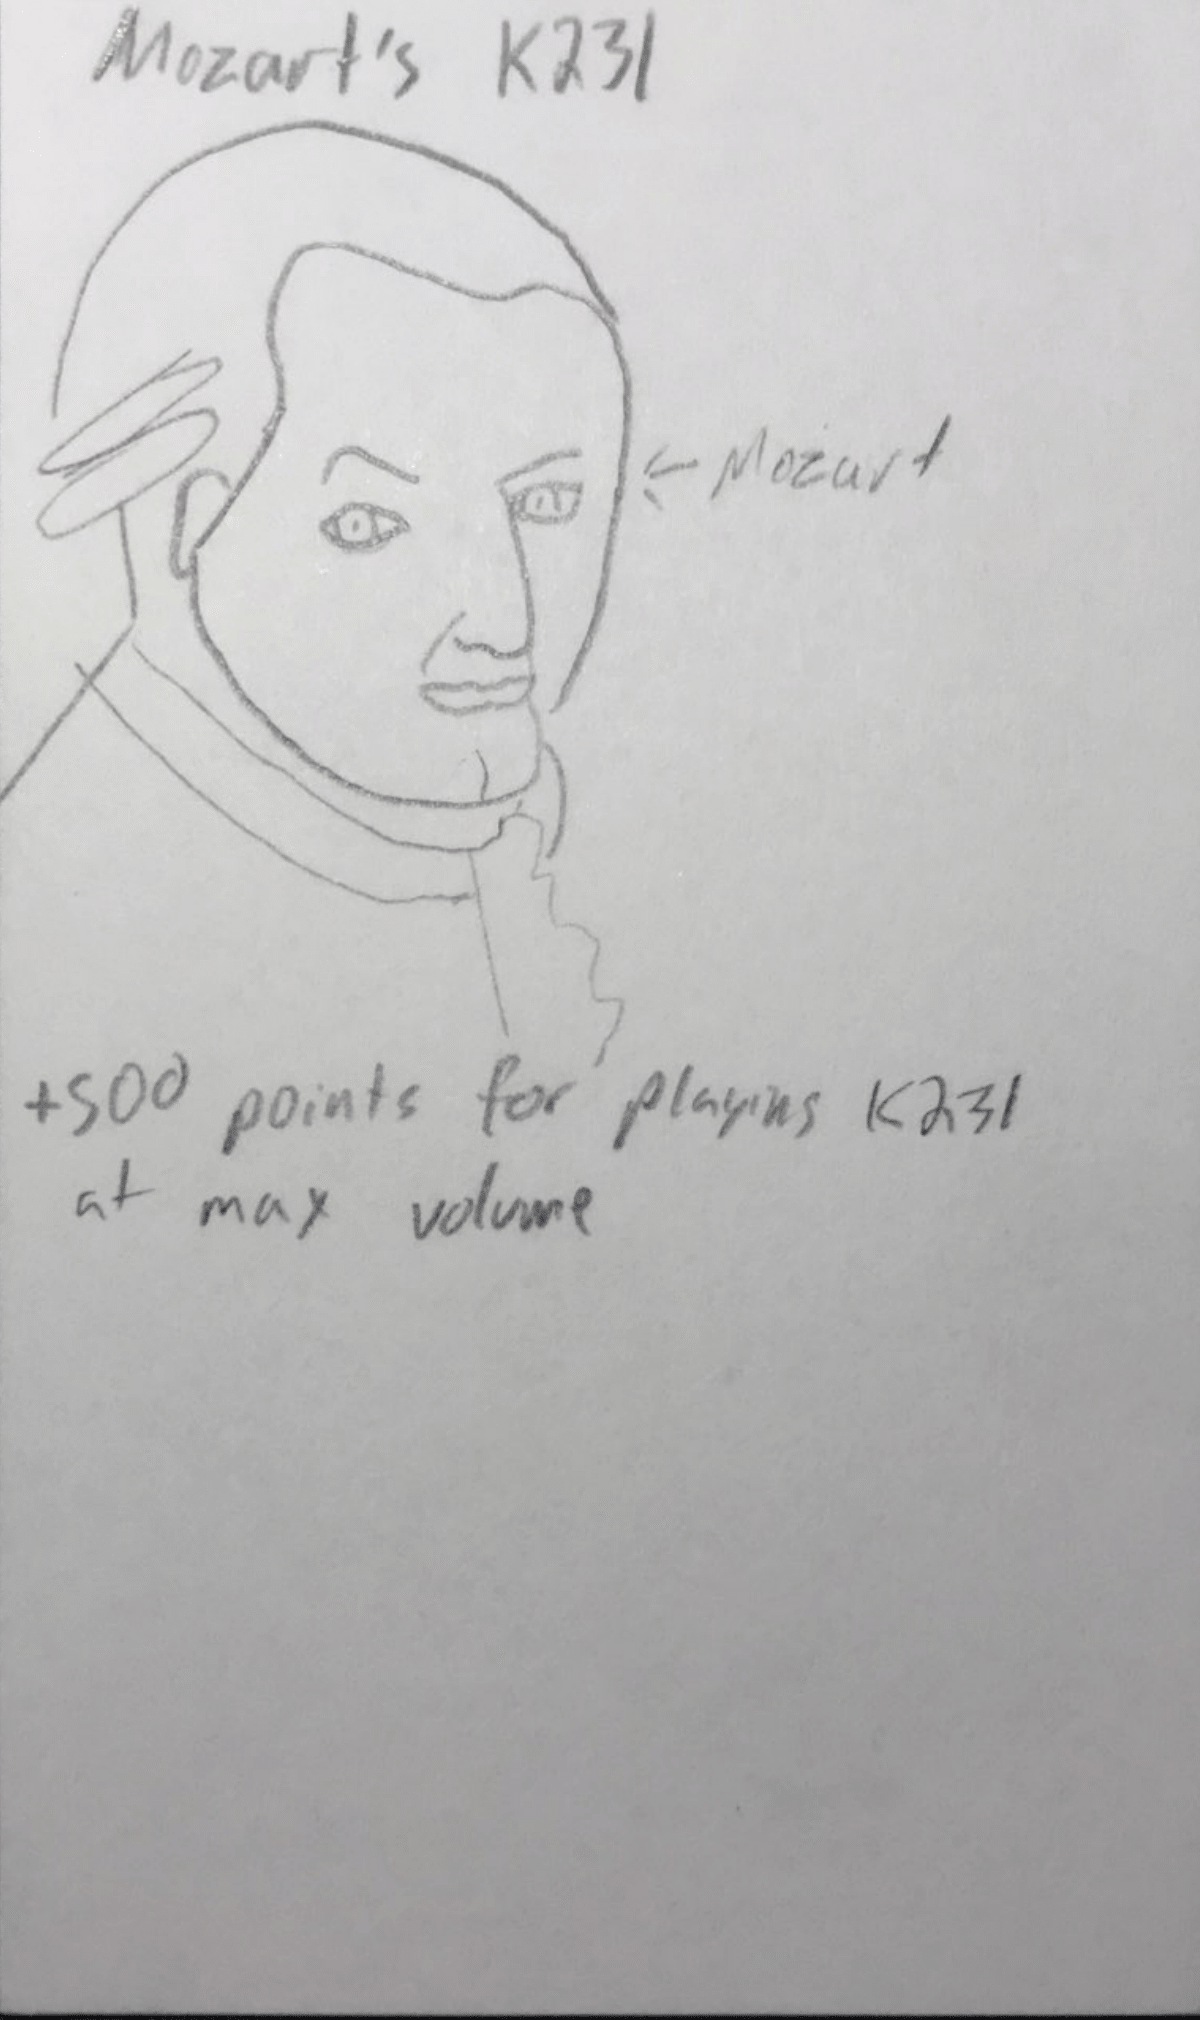 Mozart's K231
← Mozart
+500 points for playing K231
at max volume